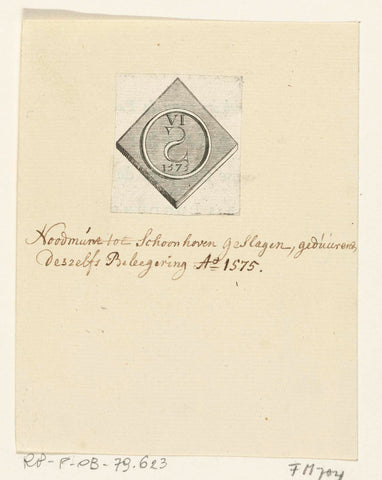 VI
S
1575
Noodmúnt tot Schoonhoven geslagen, gedúúrende
deszelfs Beleegering Aº 1575.
RP-P-OB-79.623
FM 704